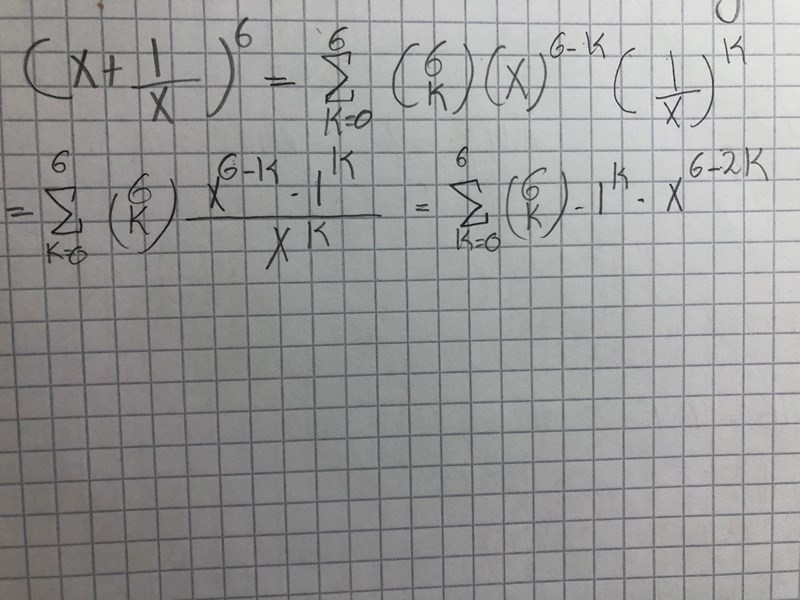 (x + 1/x)^6 = Σ_{K=0}^{6} (6 K) (x)^{6-K} (1/x)^K
= Σ_{K=0}^{6} (6 K) x^{6-K} · 1^K / x^K = Σ_{K=0}^{6} (6 K) · 1^K · x^{6-2K}